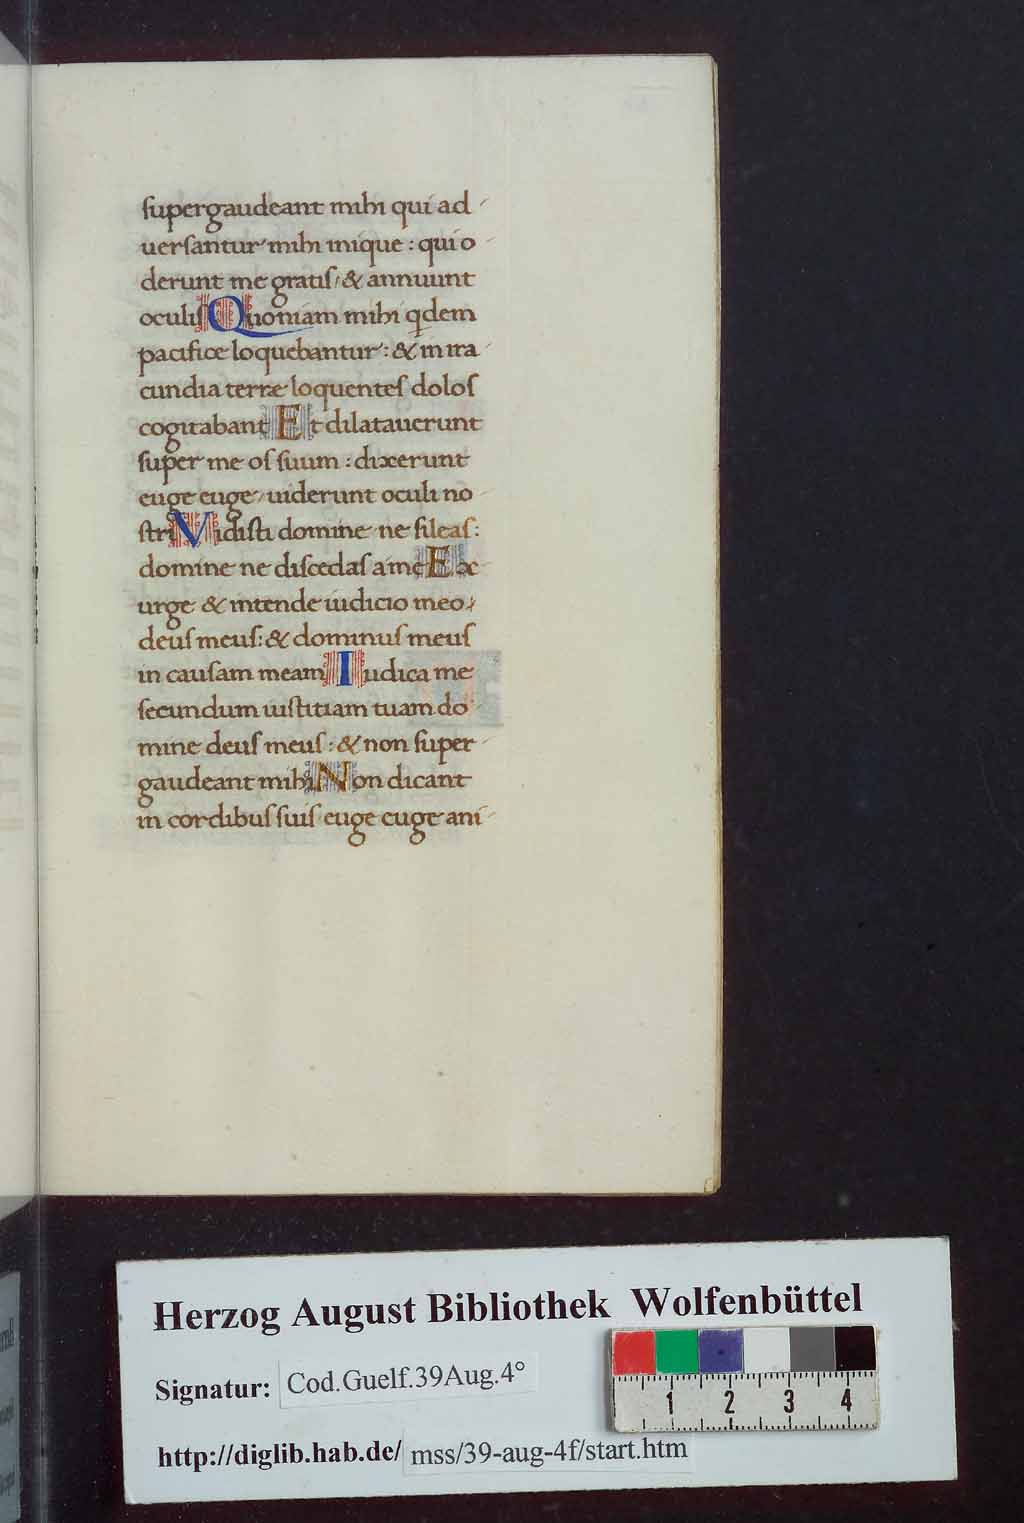 supergaudeant mihi qui ad
uersantur mihi inique : qui o
derunt me gratis / & annuunt
oculis Quoniam mihi qdem
pacifice loquebantur : & in ira
cundia terræ loquentes dolos
cogitabant Et dilatauerunt
super me os suum : dixerunt
euge euge / uiderunt oculi no
stri Vidisti domine ne sileas :
domine ne discedas a me Ex
urge & intende iudicio meo /
deus meus : & dominus meus
in causam meam Iudica me
secundum iustitiam tuam do
mine deus meus : & non super
gaudeant mihi Non dicant
in cordibus suis euge euge ani
Herzog August Bibliothek Wolfenbüttel
Signatur: Cod.Guelf.39Aug.4°
1 2 3 4
http://diglib.hab.de/ mss/39-aug-4f/start.htm